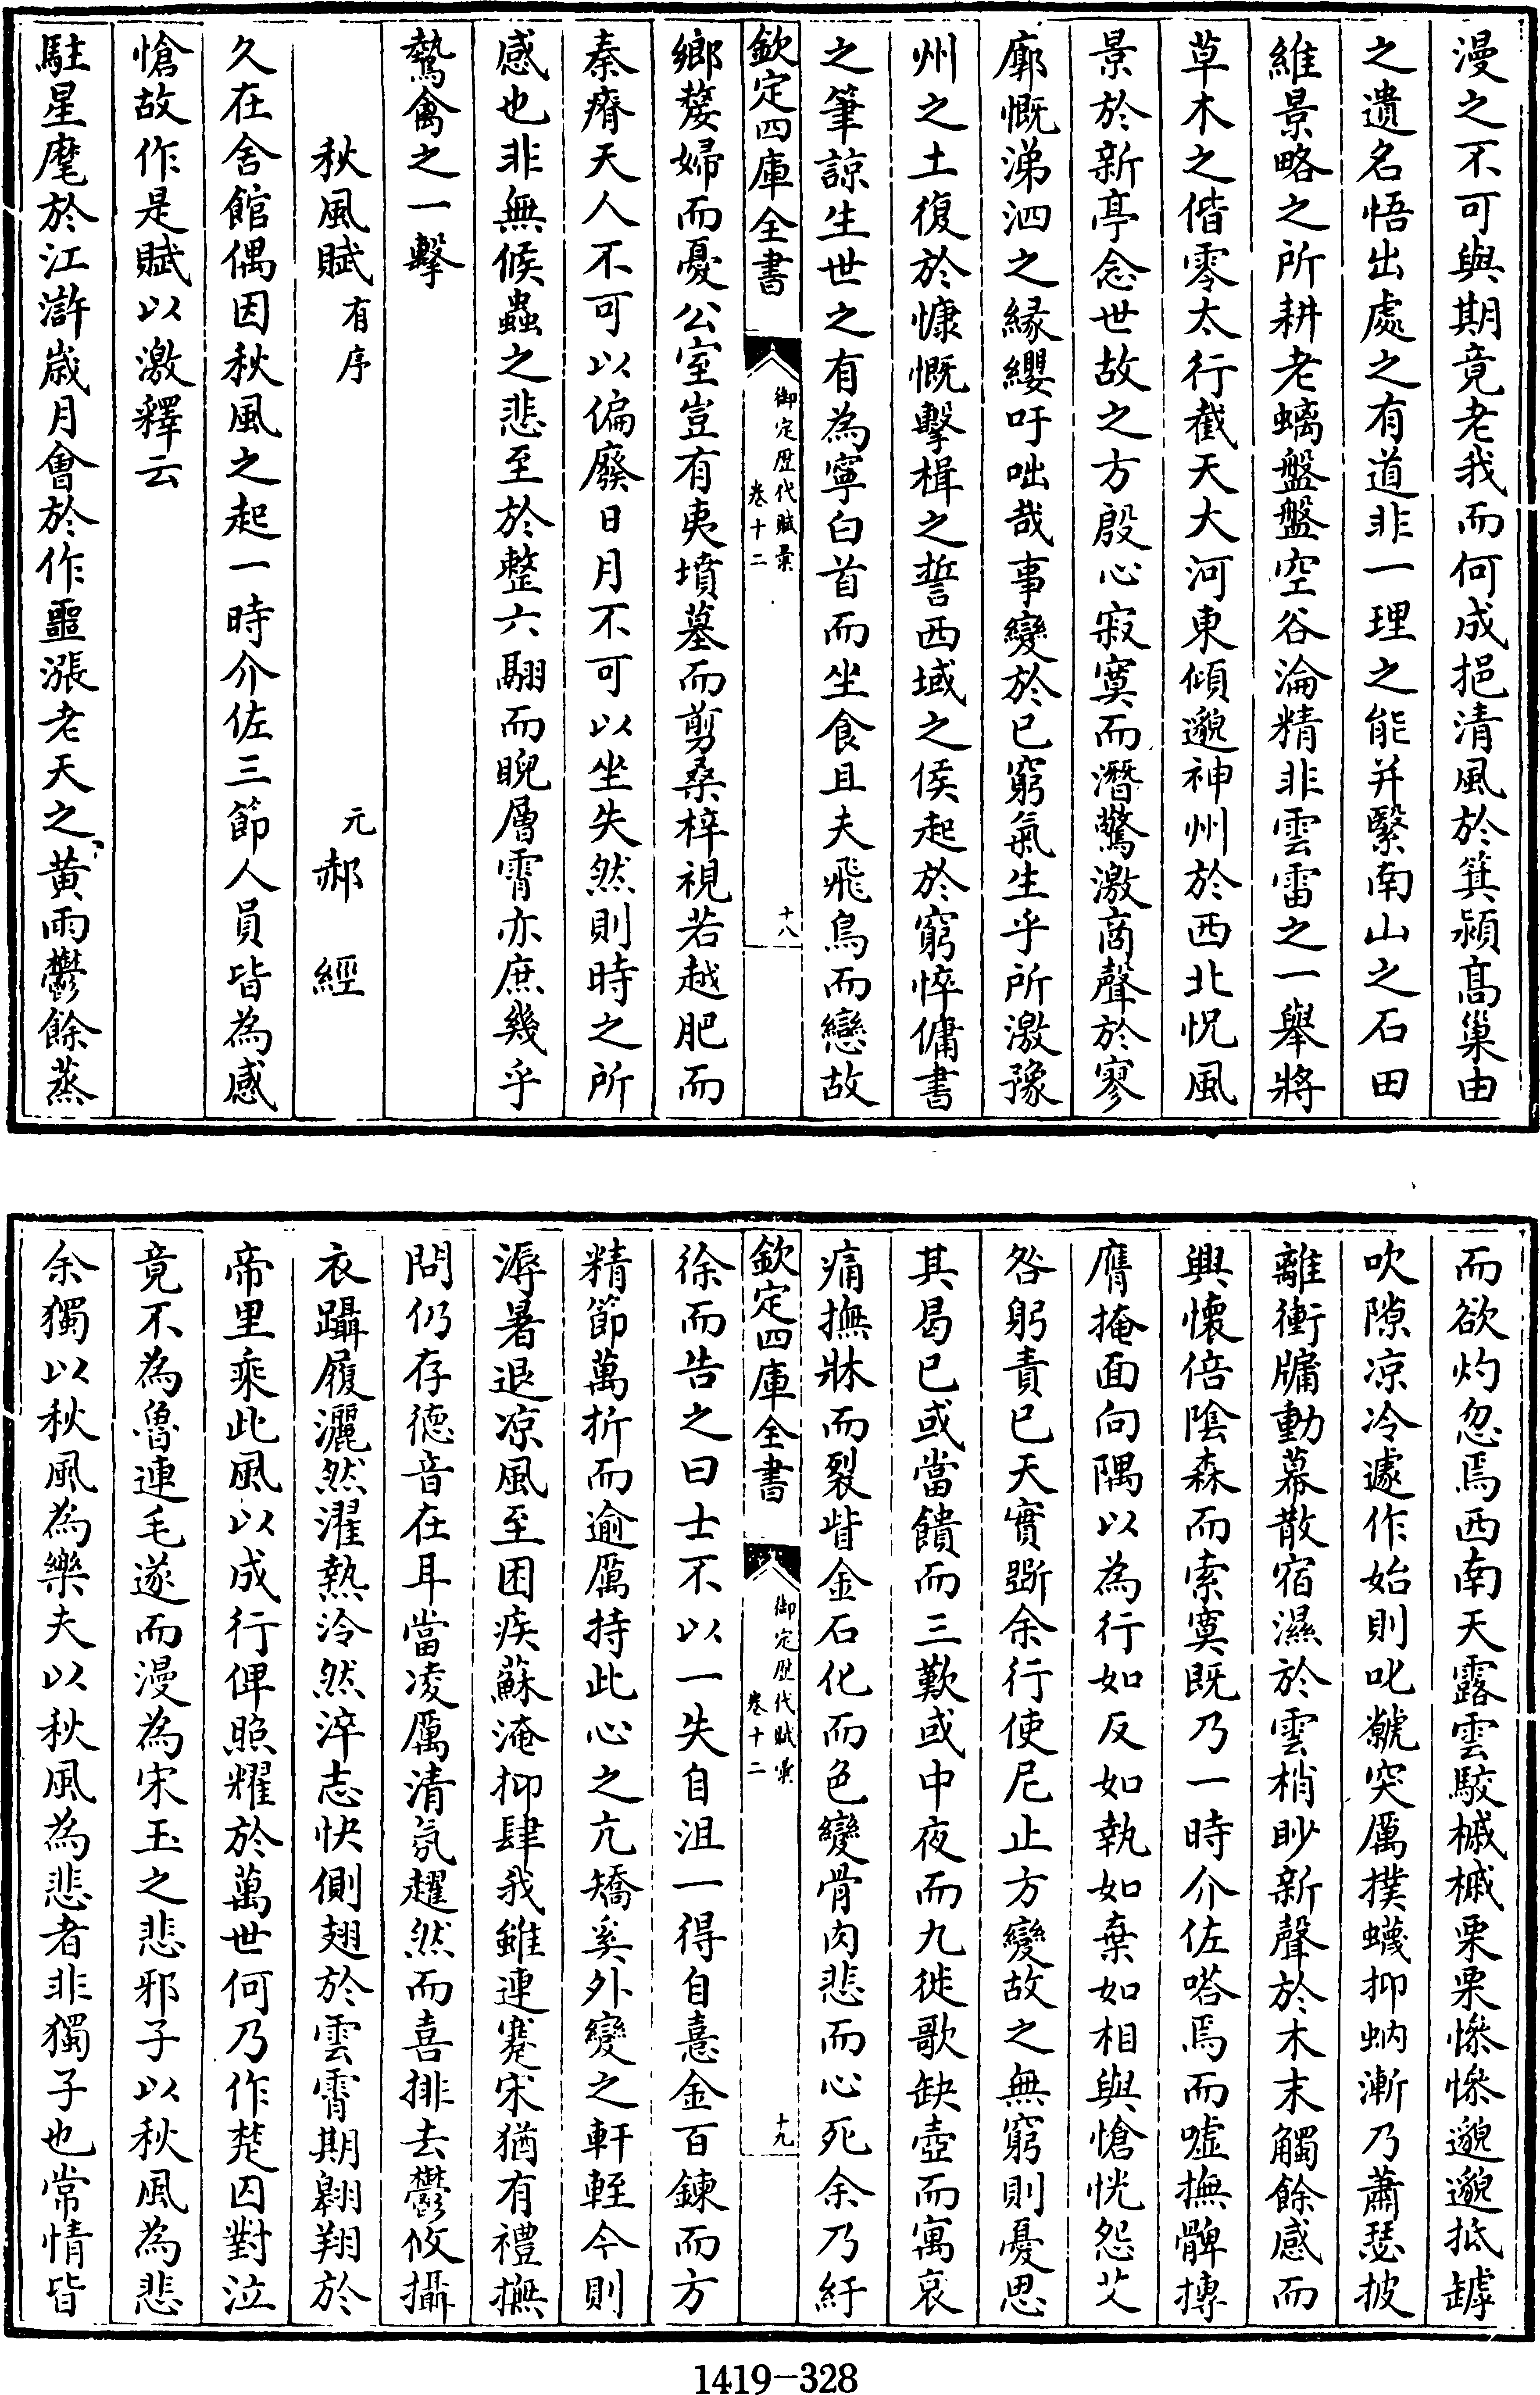 漫之不可與期竟老我而何成挹清風於箕潁髙巢由
之遺名悟出處之有道非一理之能并繄南山之石田
維景略之所耕老螭盤盤空谷淪精非雲雷之一舉將
草木之偕零太行截天大河東傾邈神州於西北怳風
景於新亭念世故之方殷心寂寞而潛驚激商聲於寥
廓慨涕泗之緣纓吁咄哉事變於已窮氣生乎所激豫
州之土復於慷慨擊楫之誓西域之侯起於窮悴傭書
之筆諒生世之有為寧白首而坐食且夫飛鳥而戀故
欽定四庫全書
御定歴代賦彙
卷十二
十八
鄉嫠婦而憂公室豈有夷墳墓而剪桑梓視若越肥而
秦瘠天人不可以偏廢日月不可以坐失然則時之所
感也非無候蟲之悲至於整六翮而睨層霄亦庶幾乎
鷙禽之一擊
秋風賦有序
元郝經
久在舍館偶因秋風之起一時介佐三節人員皆為感
愴故作是賦以激釋云
駐星麾於江滸嵗月會於作噩漲老天之黄雨鬱餘蒸
而欲灼忽焉西南天露雲駮槭槭栗栗慘慘邈邈抵罅
吹隙凉冷遽作始則叱虩突厲撲蠛抑蚋漸乃蕭瑟披
離衝牖動幕散宿濕於雲梢眇新聲於木末觸餘感而
興懷倍陰森而索寞既乃一時介佐嗒焉而嘘撫髀摶
膺掩面向隅以為行如反如執如棄如相與愴恍怨艾
咎躬責已天實斲余行使尼止方變故之無窮則憂思
其曷已或當饋而三歎或中夜而九徙歌缺壺而寓哀
痛撫牀而裂眥金石化而色變骨肉悲而心死余乃紆
欽定四庫全書
御定歴代賦彙
卷十二
十九
徐而告之曰士不以一失自沮一得自憙金百鍊而方
精節萬折而逾厲持此心之亢矯奚外變之軒輊今則
溽暑退凉風至困疾蘇淹抑肆我雖連蹇宋猶有禮撫
問仍存德音在耳當凌厲清氛趯然而喜排去鬱攸攝
衣躡履灑然濯熱泠然淬志快側翅於雲霄期翱翔於
帝里乘此風以成行俾照耀於萬世何乃作楚囚對泣
竟不為魯連毛遂而漫為宋玉之悲邪子以秋風為悲
余獨以秋風為樂夫以秋風為悲者非獨子也常情皆
1419-328